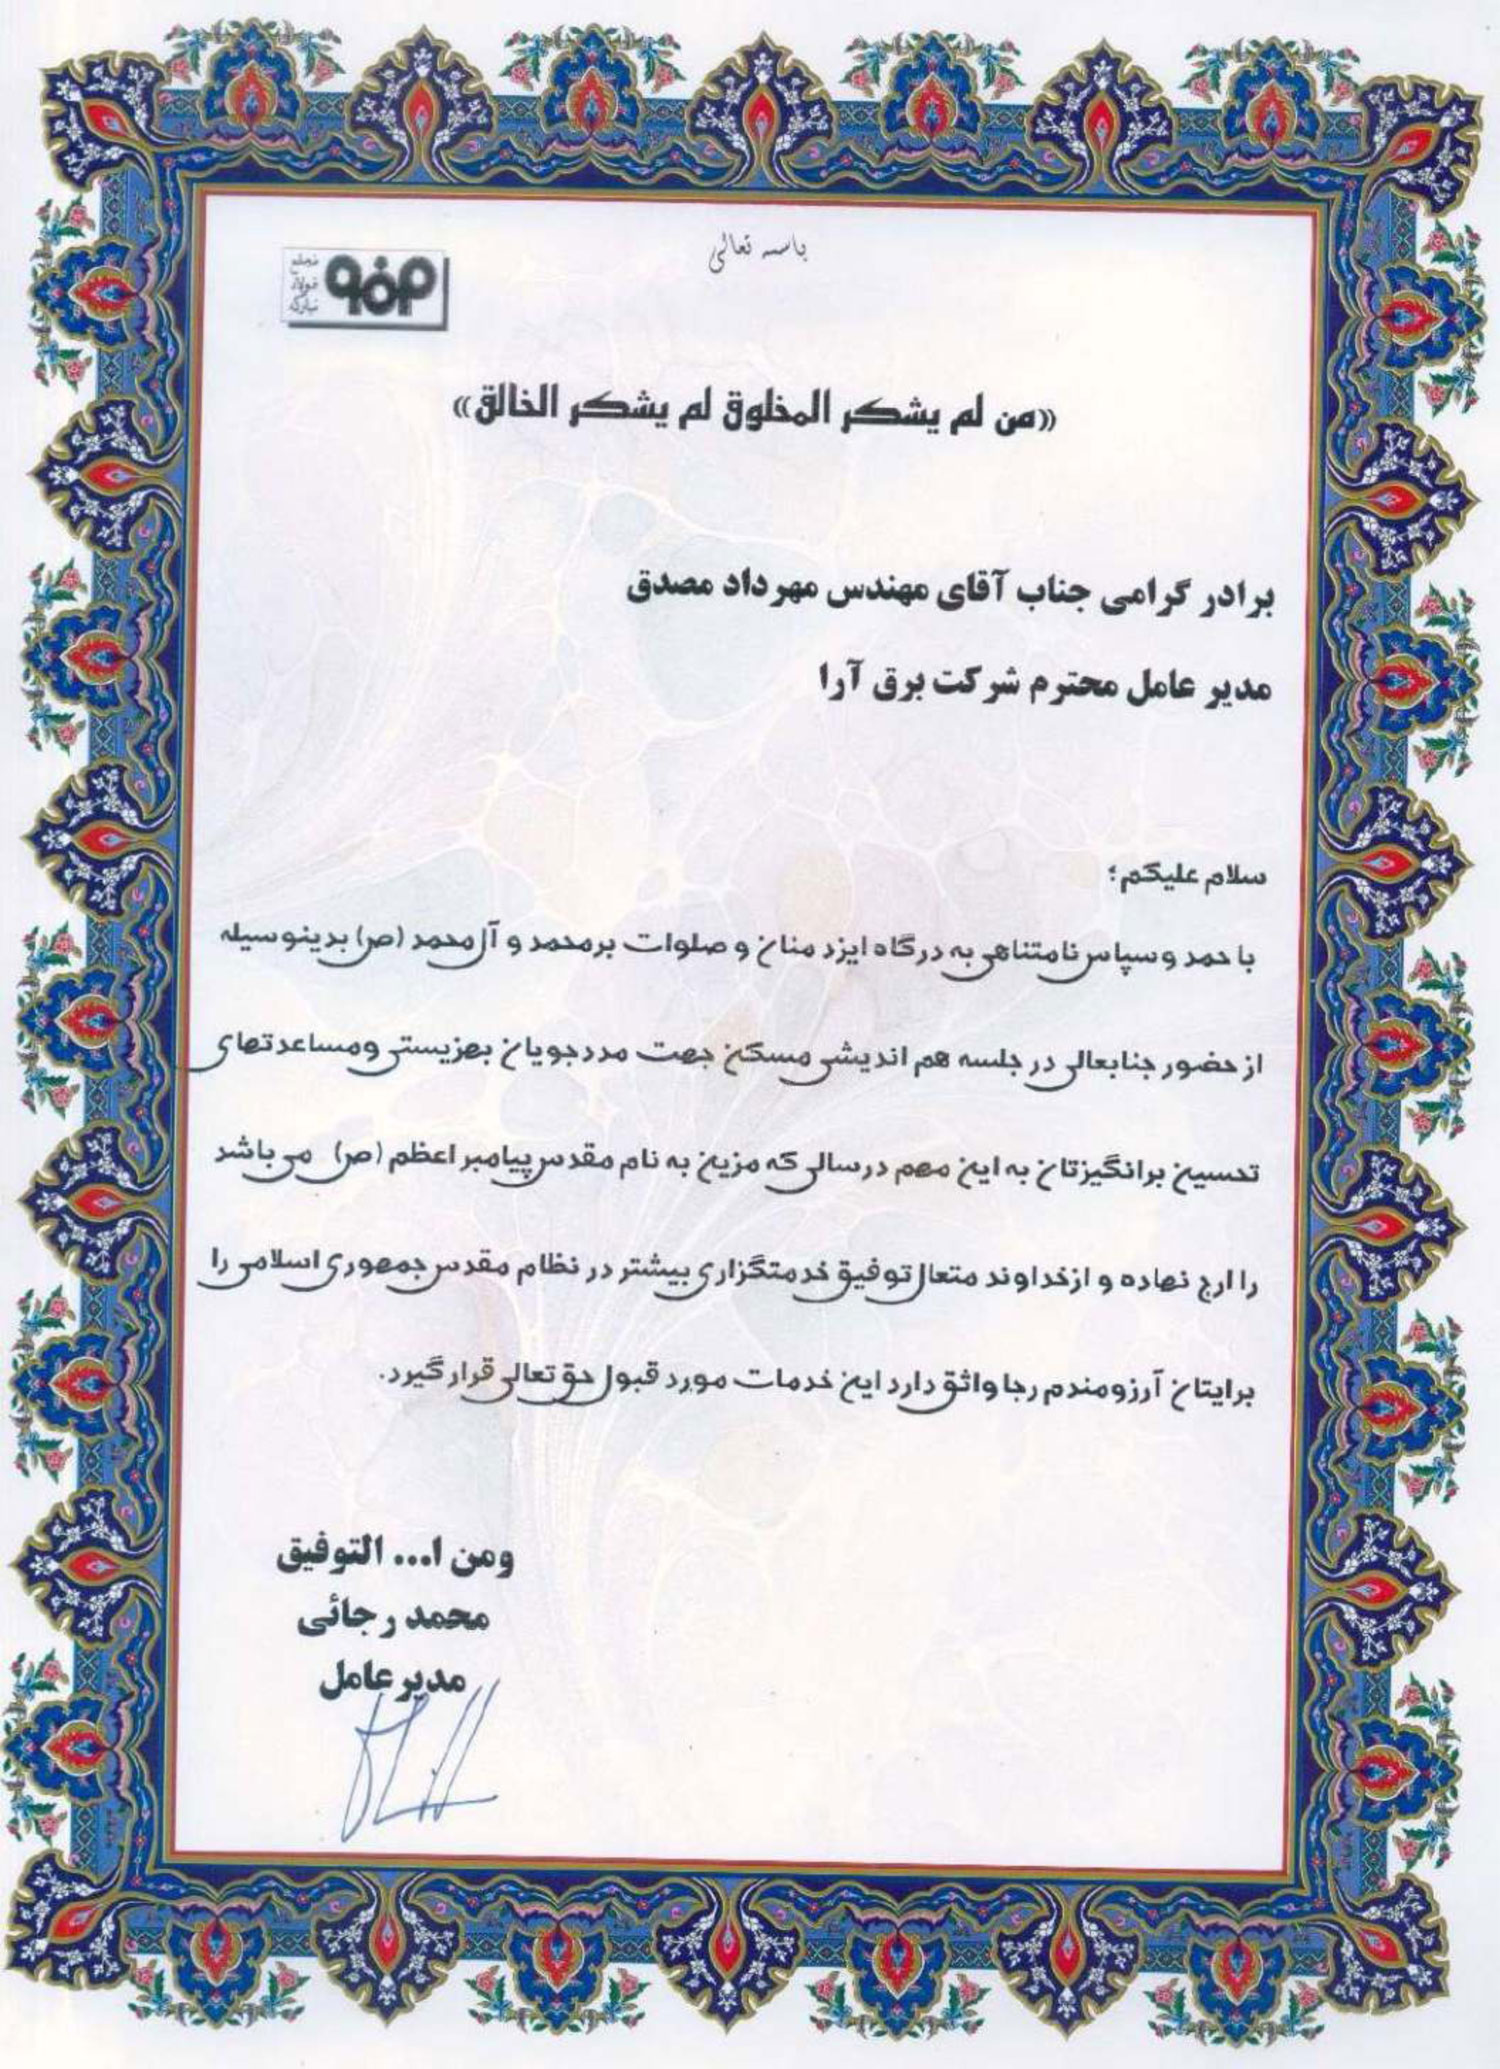 باسمه تعالی
مجتمع
فولاد
مبارکه
«من لم یشکر المخلوق لم یشکر الخالق»
برادر گرامی جناب آقای مهندس مهرداد مصدق
مدیر عامل محترم شرکت برق آرا
سلام علیکم؛
با حمد و سپاس نامتناهی به درگاه ایزد منان و صلوات برمحمد و آل محمد (ص) بدینوسیله
از حضور جنابعالی در جلسه هم اندیشی مسکن جهت مددجویان بهزیستی ومساعدتهای
تحسین برانگیزتان به این مهم درسالی که مزین به نام مقدس پیامبر اعظم (ص) می باشد
را ارج نهاده و ازخداوند متعال توفیق خدمتگزاری بیشتر در نظام مقدس جمهوری اسلامی را
برایتان آرزومندم رجا واثق دارد این خدمات مورد قبول حق تعالی قرار گیرد.
ومن ا... التوفیق
محمد رجائی
مدیر عامل